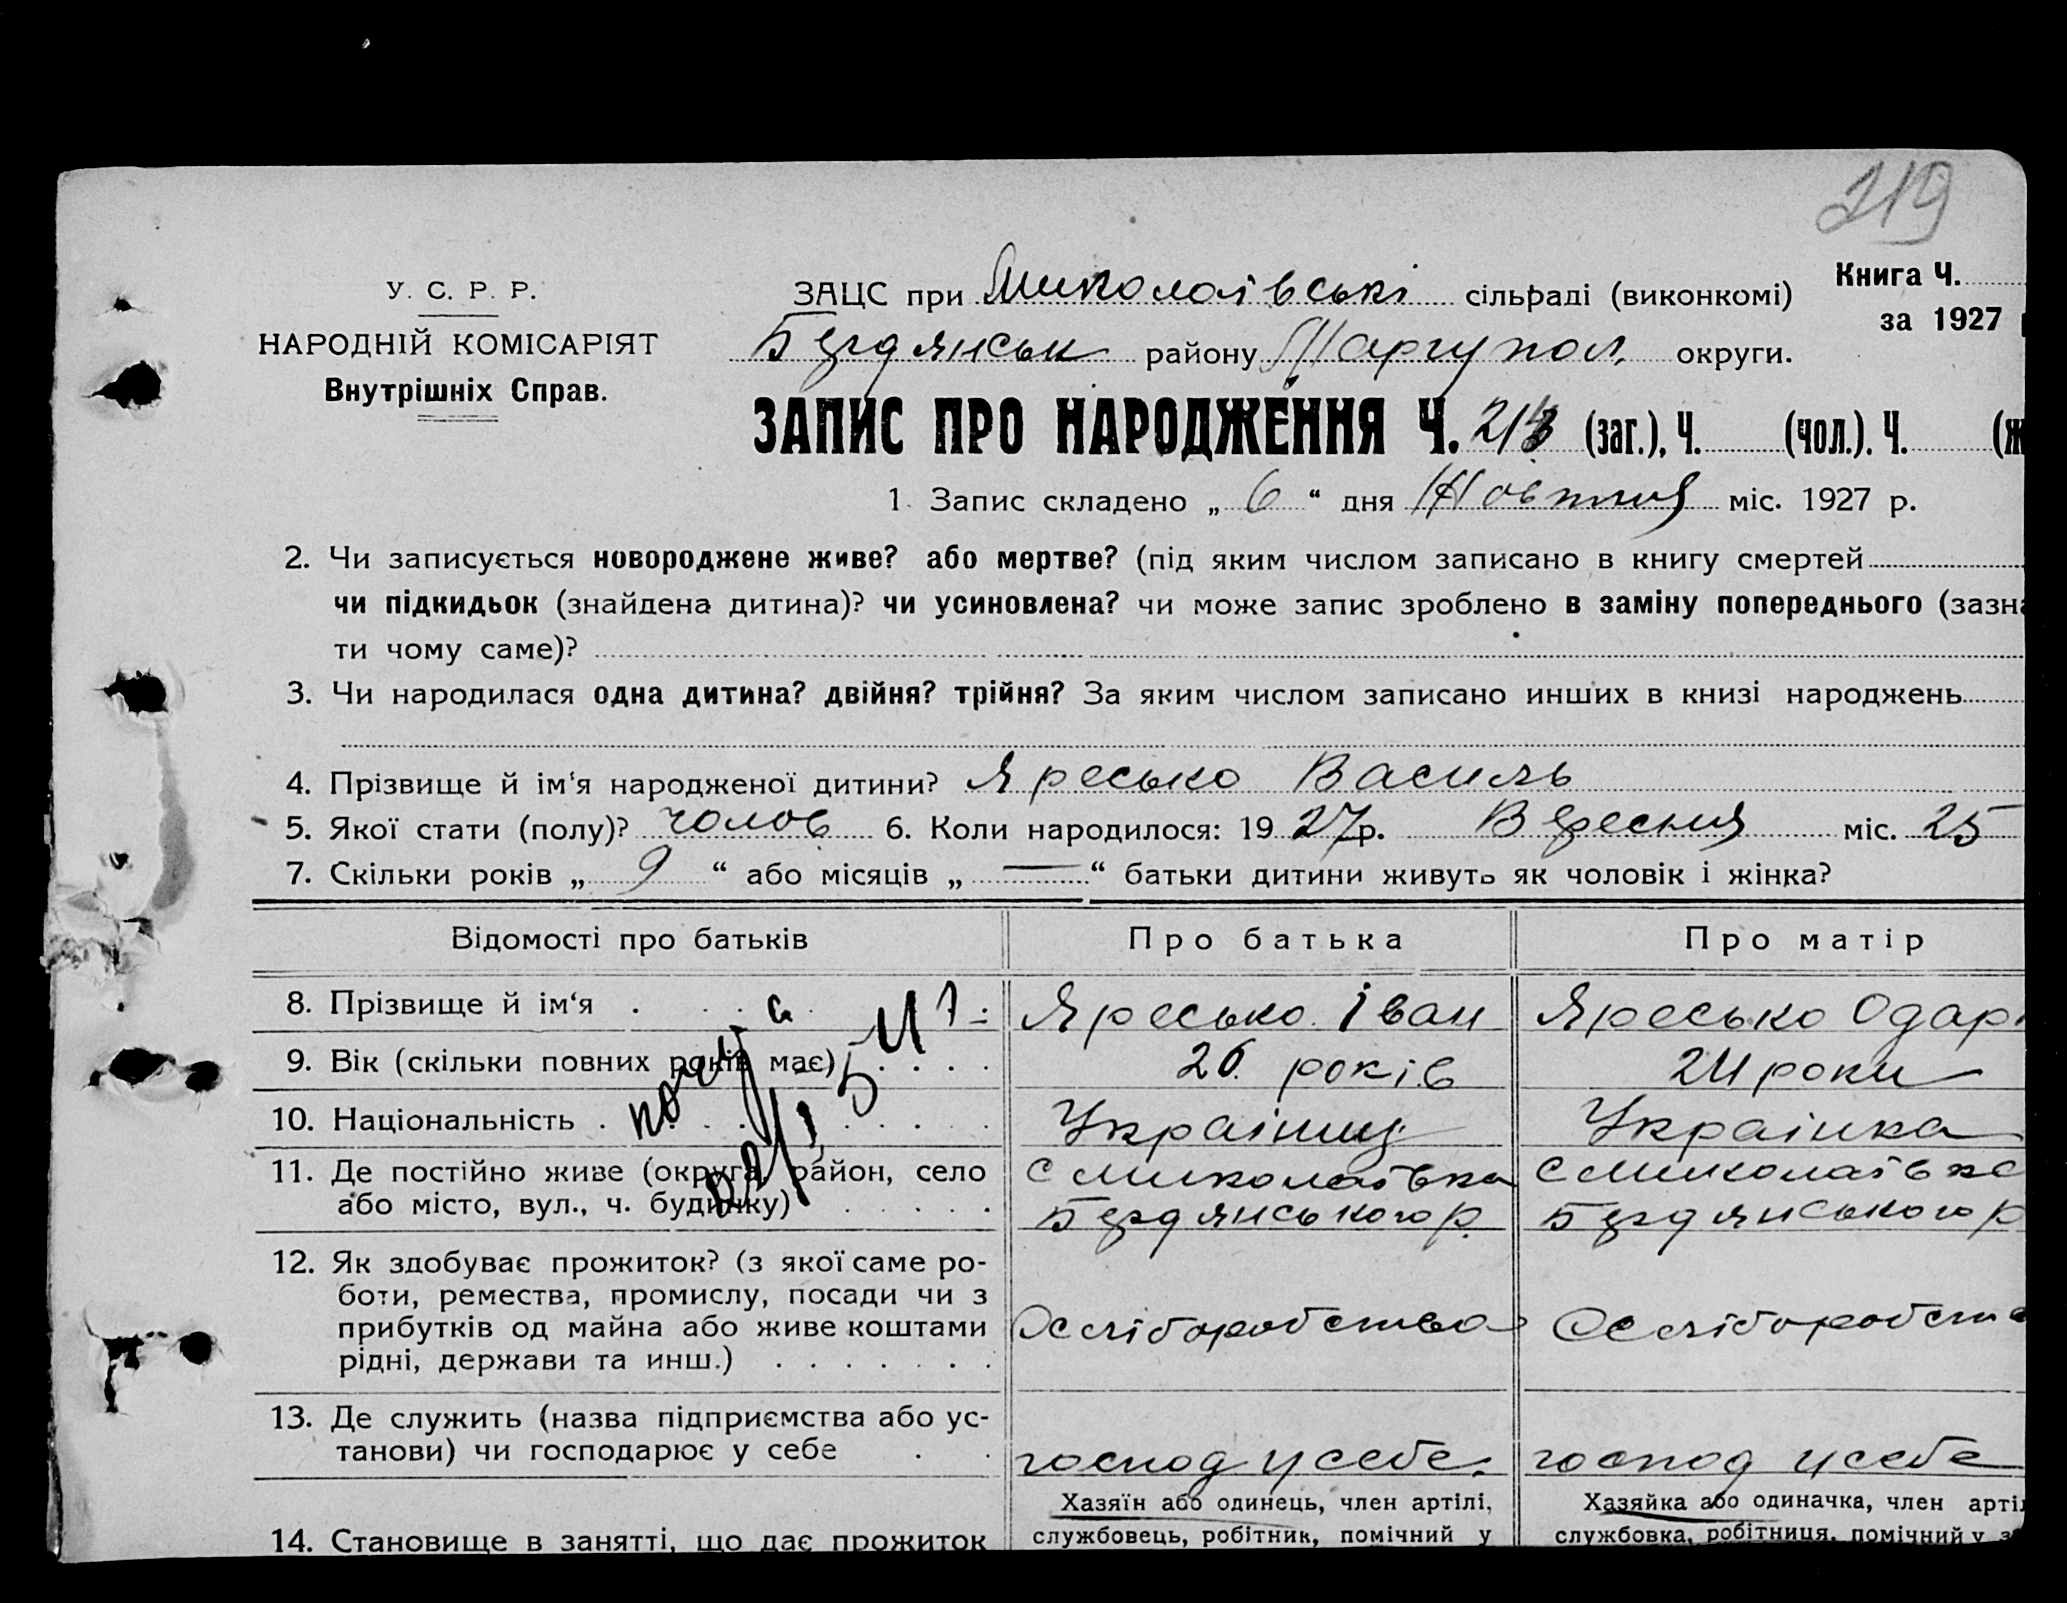 219
У. С. Р. Р.
НАРОДНІЙ КОМІСАРІЯТ
Внутрішніх Справ.
ЗАЦС при Миколаївські сільраді (виконкомі)
Книга Ч.
за 1927
Бердянськ району Маріупол. округи.
ЗАПИС ПРО НАРОДЖЕННЯ Ч. (заг.), Ч. (чол.). Ч. (ж
1. Запис складено „ 6 “ дня Жовтня міс. 1927 р.
2. Чи записується новороджене живе? або мертве? (під яким числом записано в книгу смертей
чи підкидьок (знайдена дитина)? чи усиновлена? чи може запис зроблено в заміну попереднього (зазна
ти чому саме)?
3. Чи народилася одна дитина? двійня? трійня? За яким числом записано инших в книзі народжень
4. Прізвище й ім‘я народженої дитини? Яресько Василь
5. Якої стати (полу)? чолов 6. Коли народилося: 1927р. Вересня міс. 25
7. Скільки років „ 9 “ або місяців „ — “ батьки дитини живуть як чоловік і жінка?
Відомості про батьків Про батька Про матір
8. Прізвище й ім‘я Яресько Іван Яресько Одар
9. Вік (скільки повних років має) 26 років 24 роки
10. Національність Українец Українка
11. Де постійно живе (округа, район, село с Миколаївка с Миколаївка
або місто, вул., ч. будинку) Бердянського р. Бердянського р
12. Як здобуває прожиток? (з якої саме ро-
боти, ремества, промислу, посади чи з
прибутків од майна або живе коштами Хліборобство Хлібороbств
рідні, держави та инш.)
13. Де служить (назва підприємства або ус-
танови) чи господарює у себе господ у себе. господ у себе
Хазяїн або одинець, член артілі, Хазяйка або одиначка, член арті
14. Становище в занятті, що дає прожиток службовець, робітник, помічний у службовка, робітниця, помічний у